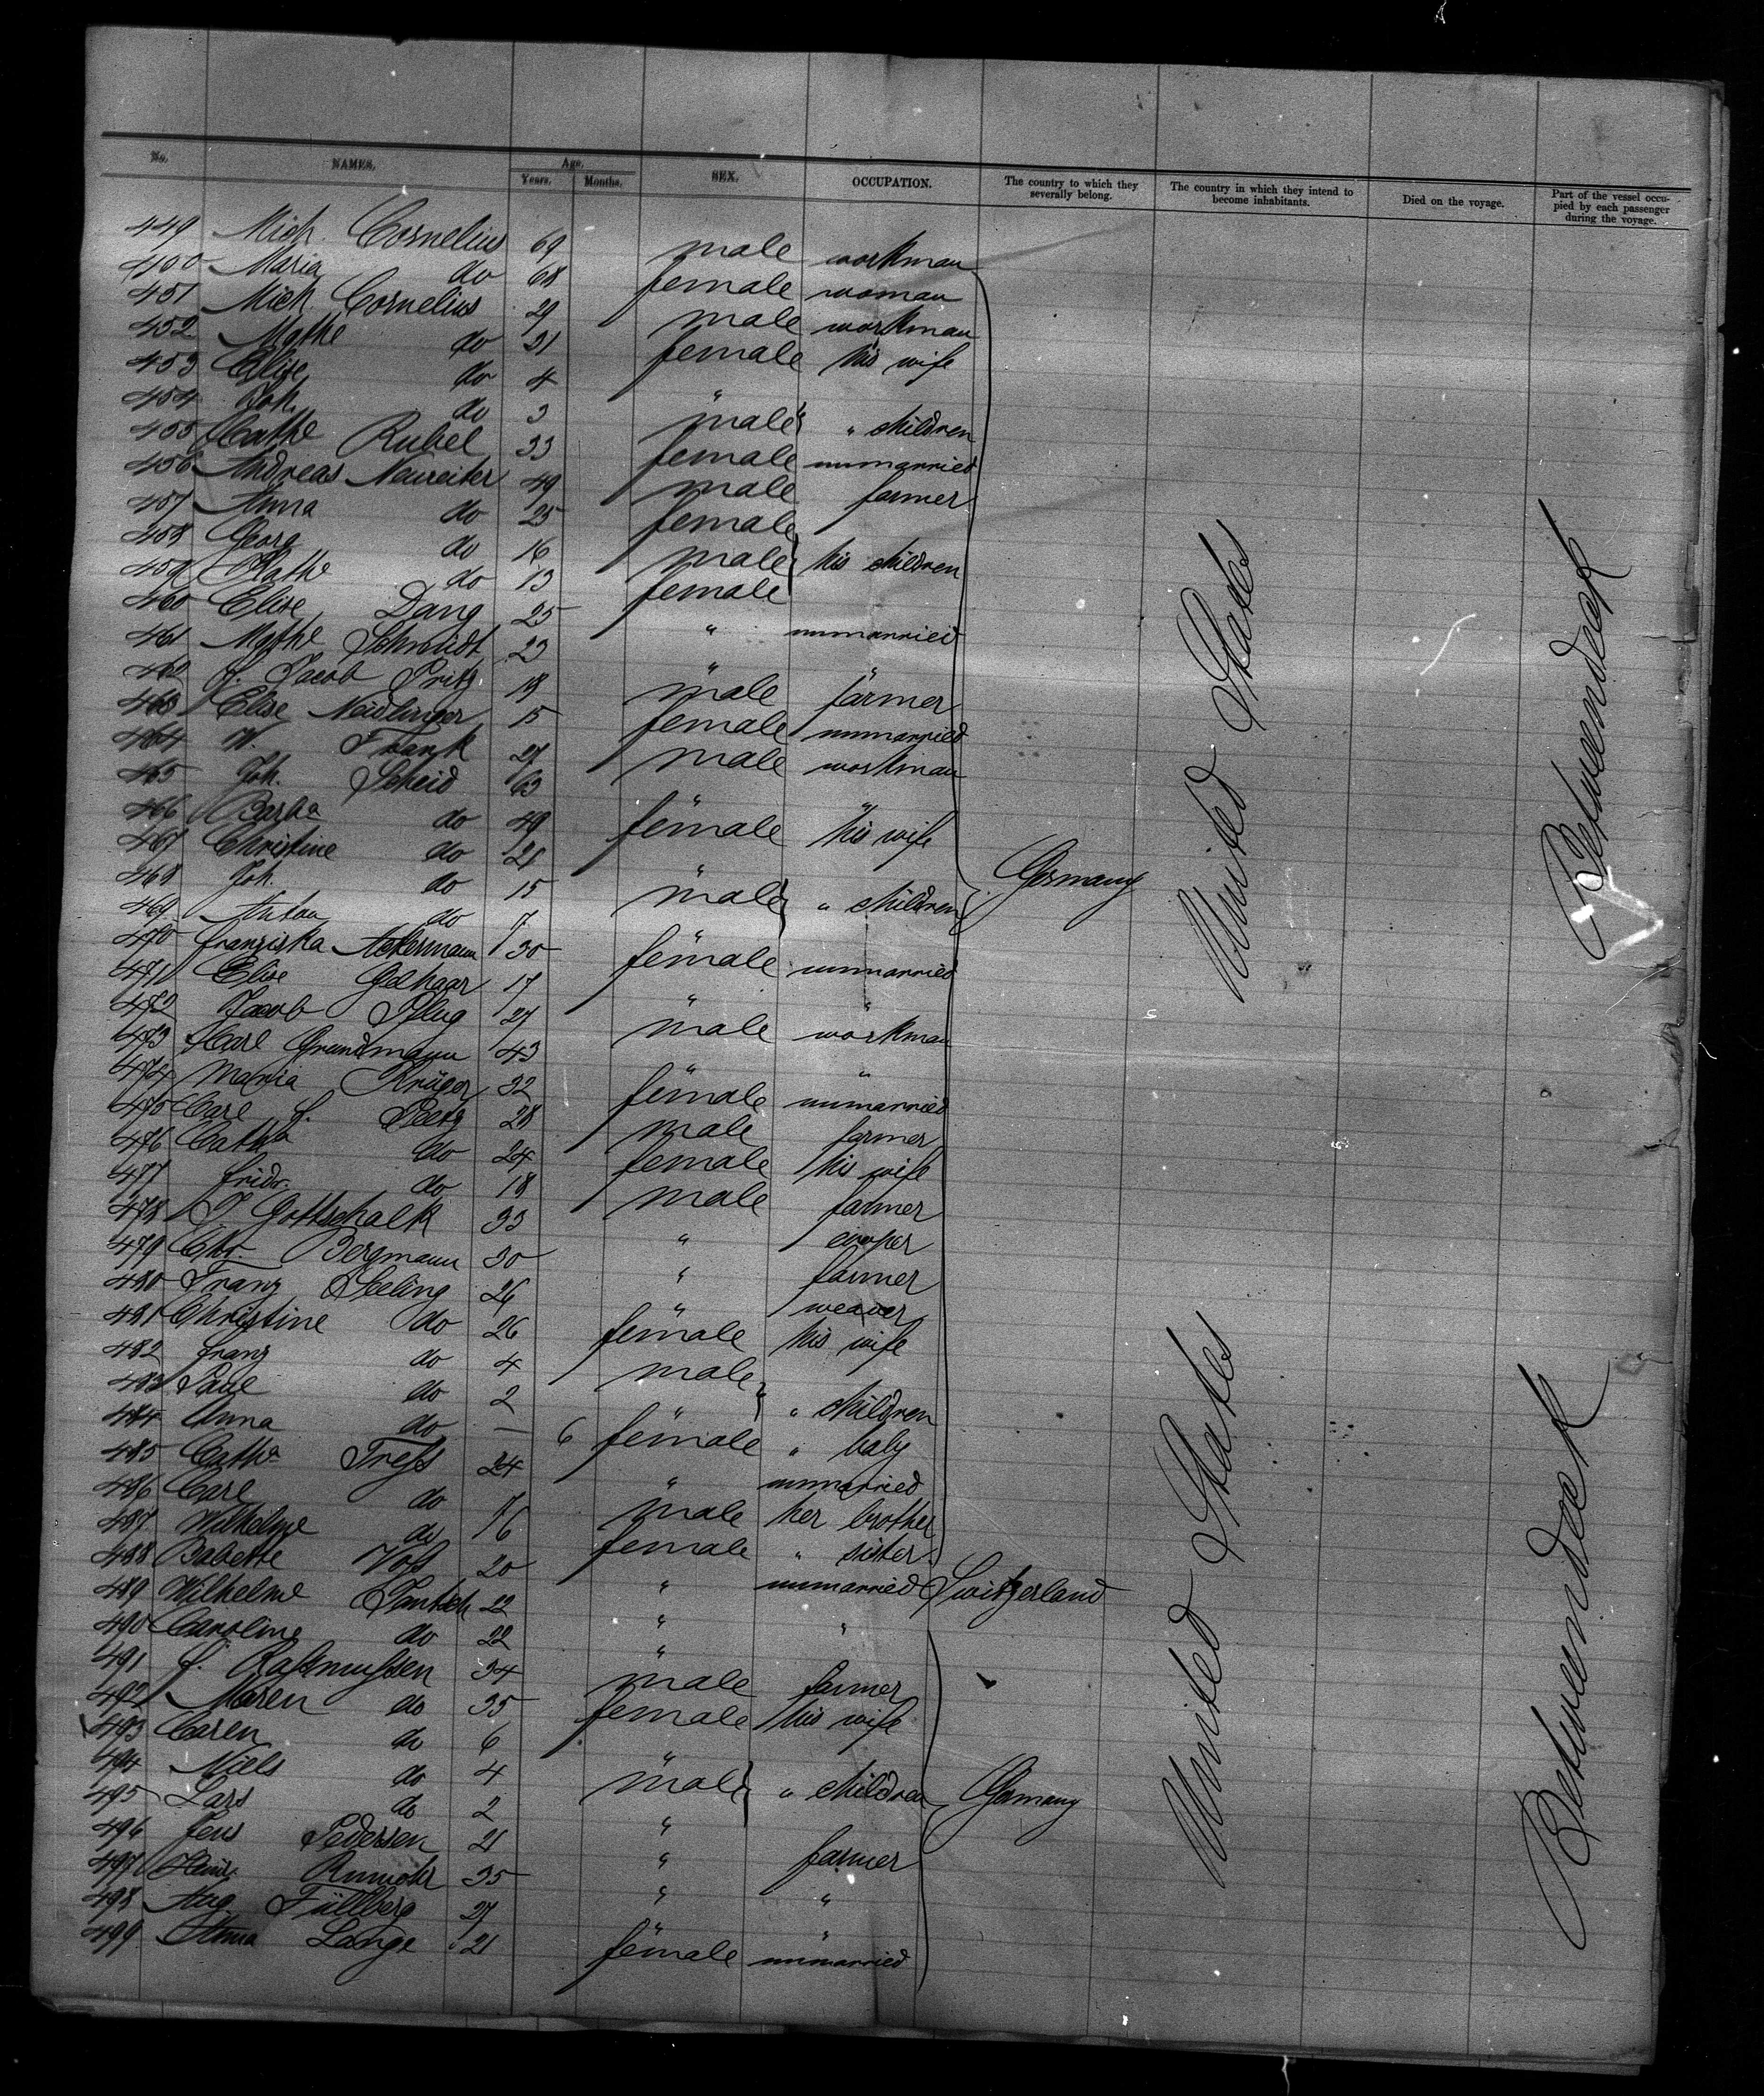 No. NAMES. Age. Years. Months. SEX. OCCUPATION. The country to which they severally belong. The country in which they intend to become inhabitants. Died on the voyage. Part of the vessel occupied by each passenger during the voyage.
449 Mich. Cornelius 69 male workman
400 Maria do 68 female woman
451 Mich. Cornelius 29 male workman
452 Mathe do 31 female his wife
453 Elise do 4 "
454 Joh. do 3 male " children
455 Cathe Rubel 33 female unmarried
456 Andreas Neureiter 49 male farmer
457 Anna do 25 female
458 Georg do 16 male his children
459 Kathe do 13 female
460 Elise Dang 25 " unmarried
461 Mathe Schmidt 23 " "
462 J. Jacob Pritz 18 male farmer
463 Elise Neidlinger 15 female unmarried
464 W. Frank 27 male workman
465 Joh. Scheid 63 " "
466 Barba do 49 female his wife
467 Christine do 21 "
468 Joh. do 15 male " children
469 Anton do 7 "
470 Franziska Ackermann 30 female unmarried
471 Elise Gelhaar 17 " "
472 Jacob Pflug 27 male workman
473 Carl Grundmann 43 " "
474 Maria Krüger 32 female unmarried
475 Carl F. Peetz 28 male farmer
476 Catha do 24 female his wife
477 Fridr. do 18 male farmer
478 J Gottschalk 33 " cooper
479 Chr. Bergmann 30 " farmer
480 Franz Seeling 26 " weaver
481 Christine do 26 female his wife
482 Franz do 4 male
483 Paul do 2 " " children
484 Anna do — 6 female " baby
485 Catha Treß 24 " unmarried
486 Carl do 7 male her brother
487 Wilhelme do 16 female " sister
488 Babette Voß 20 " unmarried Switzerland
489 Wilhelme Jantsch 22 " "
490 Caroline do 22 "
491 J. Raßmußen 34 male farmer
492 Maren do 35 female his wife
493 Caren do 6 "
494 Niels do 4 male " children
495 Lars do 2 "
496 Jens Pedersen 21 " farmer
497 Heinr. Rumohr 35 " "
498 Aug Füllberg 27 "
499 Anna Lange 21 female unmarried
Germany
Germany
United States
United States
Betweendeck
Betweendeck